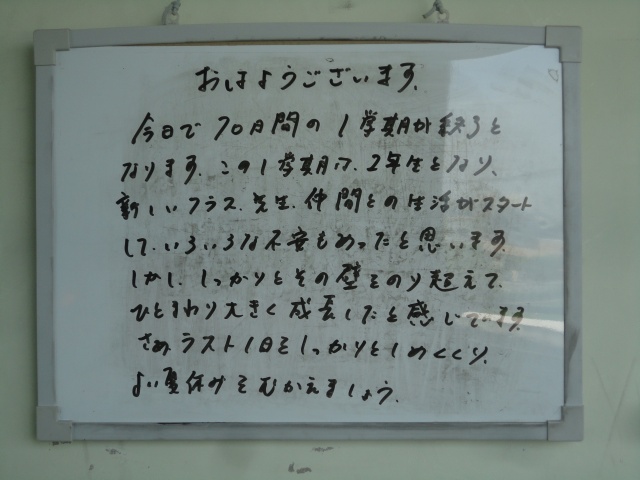 おはようございます。
今日で70日間の1学期が終了と
なります。この1学期は、2年生となり、
新しいクラス、先生、仲間との生活がスタート
して、いろいろな不安もあったと思います。
しかし、しっかりとその壁をのり超えて、
ひとまわり大きく成長したと感じています。
さあラスト1日をしっかりとしめくくり、
よい夏休みをむかえましょう。